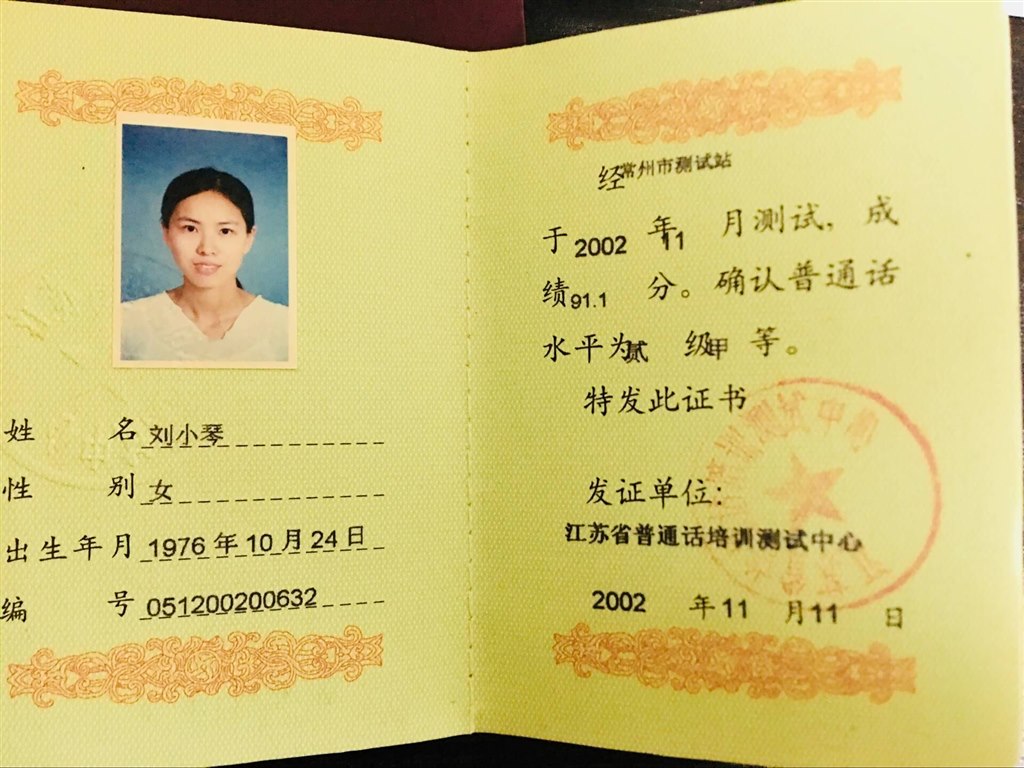 姓 名 刘小琴
性 别 女
出生年月 1976 年 10 月 24 日
编 号 051200200632
经常州市测试站
于 2002 年 11 月测试，成
绩 91.1 分。确认普通话
水平为贰 级甲 等。
特发此证书
发证单位：
江苏省普通话培训测试中心
2002 年 11 月 11 日